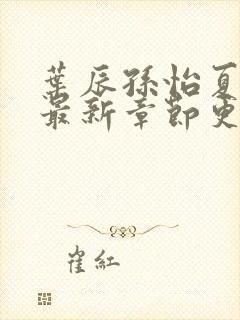 葉辰孫怡夏
最新章節更
崔紅